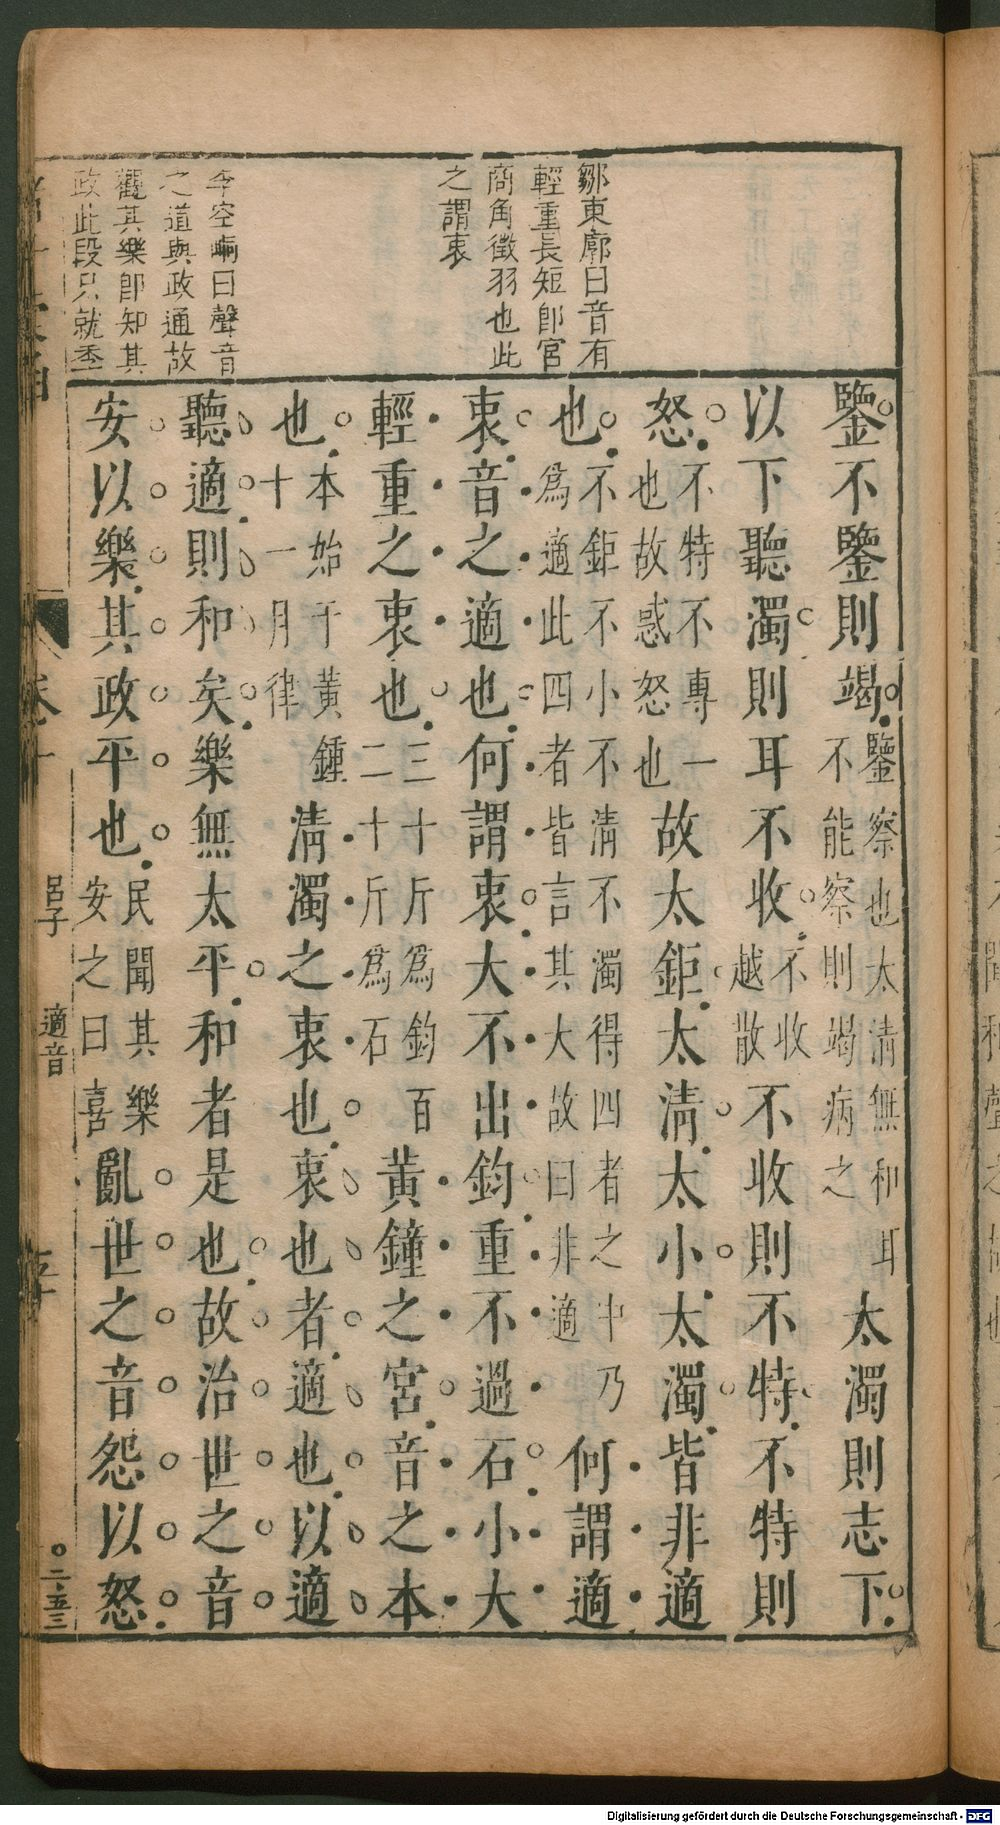 鄒東廓曰音有
輕重長短卽宮
商角徵羽也此
之謂衷
李空峒曰聲音
之道與政通故
觀其樂卽知其
政此段只就埀
鑒不鑒則竭鑒察也太淸無和耳不能察則竭病之太濁則志下
以下聽濁則耳不收不收越散不收則不特不特則
怒不特不專一也故惑怒也故太鉅太淸太小太濁皆非適
也不鉅不小不淸不濁得四者之中乃爲適此四者皆言其大故曰非適何謂適
衷音之適也何謂衷大不出鈞重不過石小大
輕重之衷也三十斤爲鈞百二十斤爲石黃鐘之宮音之本
也本始于黃鍾十一月律淸濁之衷也衷也者適也以適
聽適則和矣樂無太平和者是也故治世之音
安以樂其政平也民聞其樂安之曰喜亂世之音怨以怒
呂子
適音
〇二五三
Digitalisierung gefördert durch die Deutsche Forschungsgemeinschaft - DFG